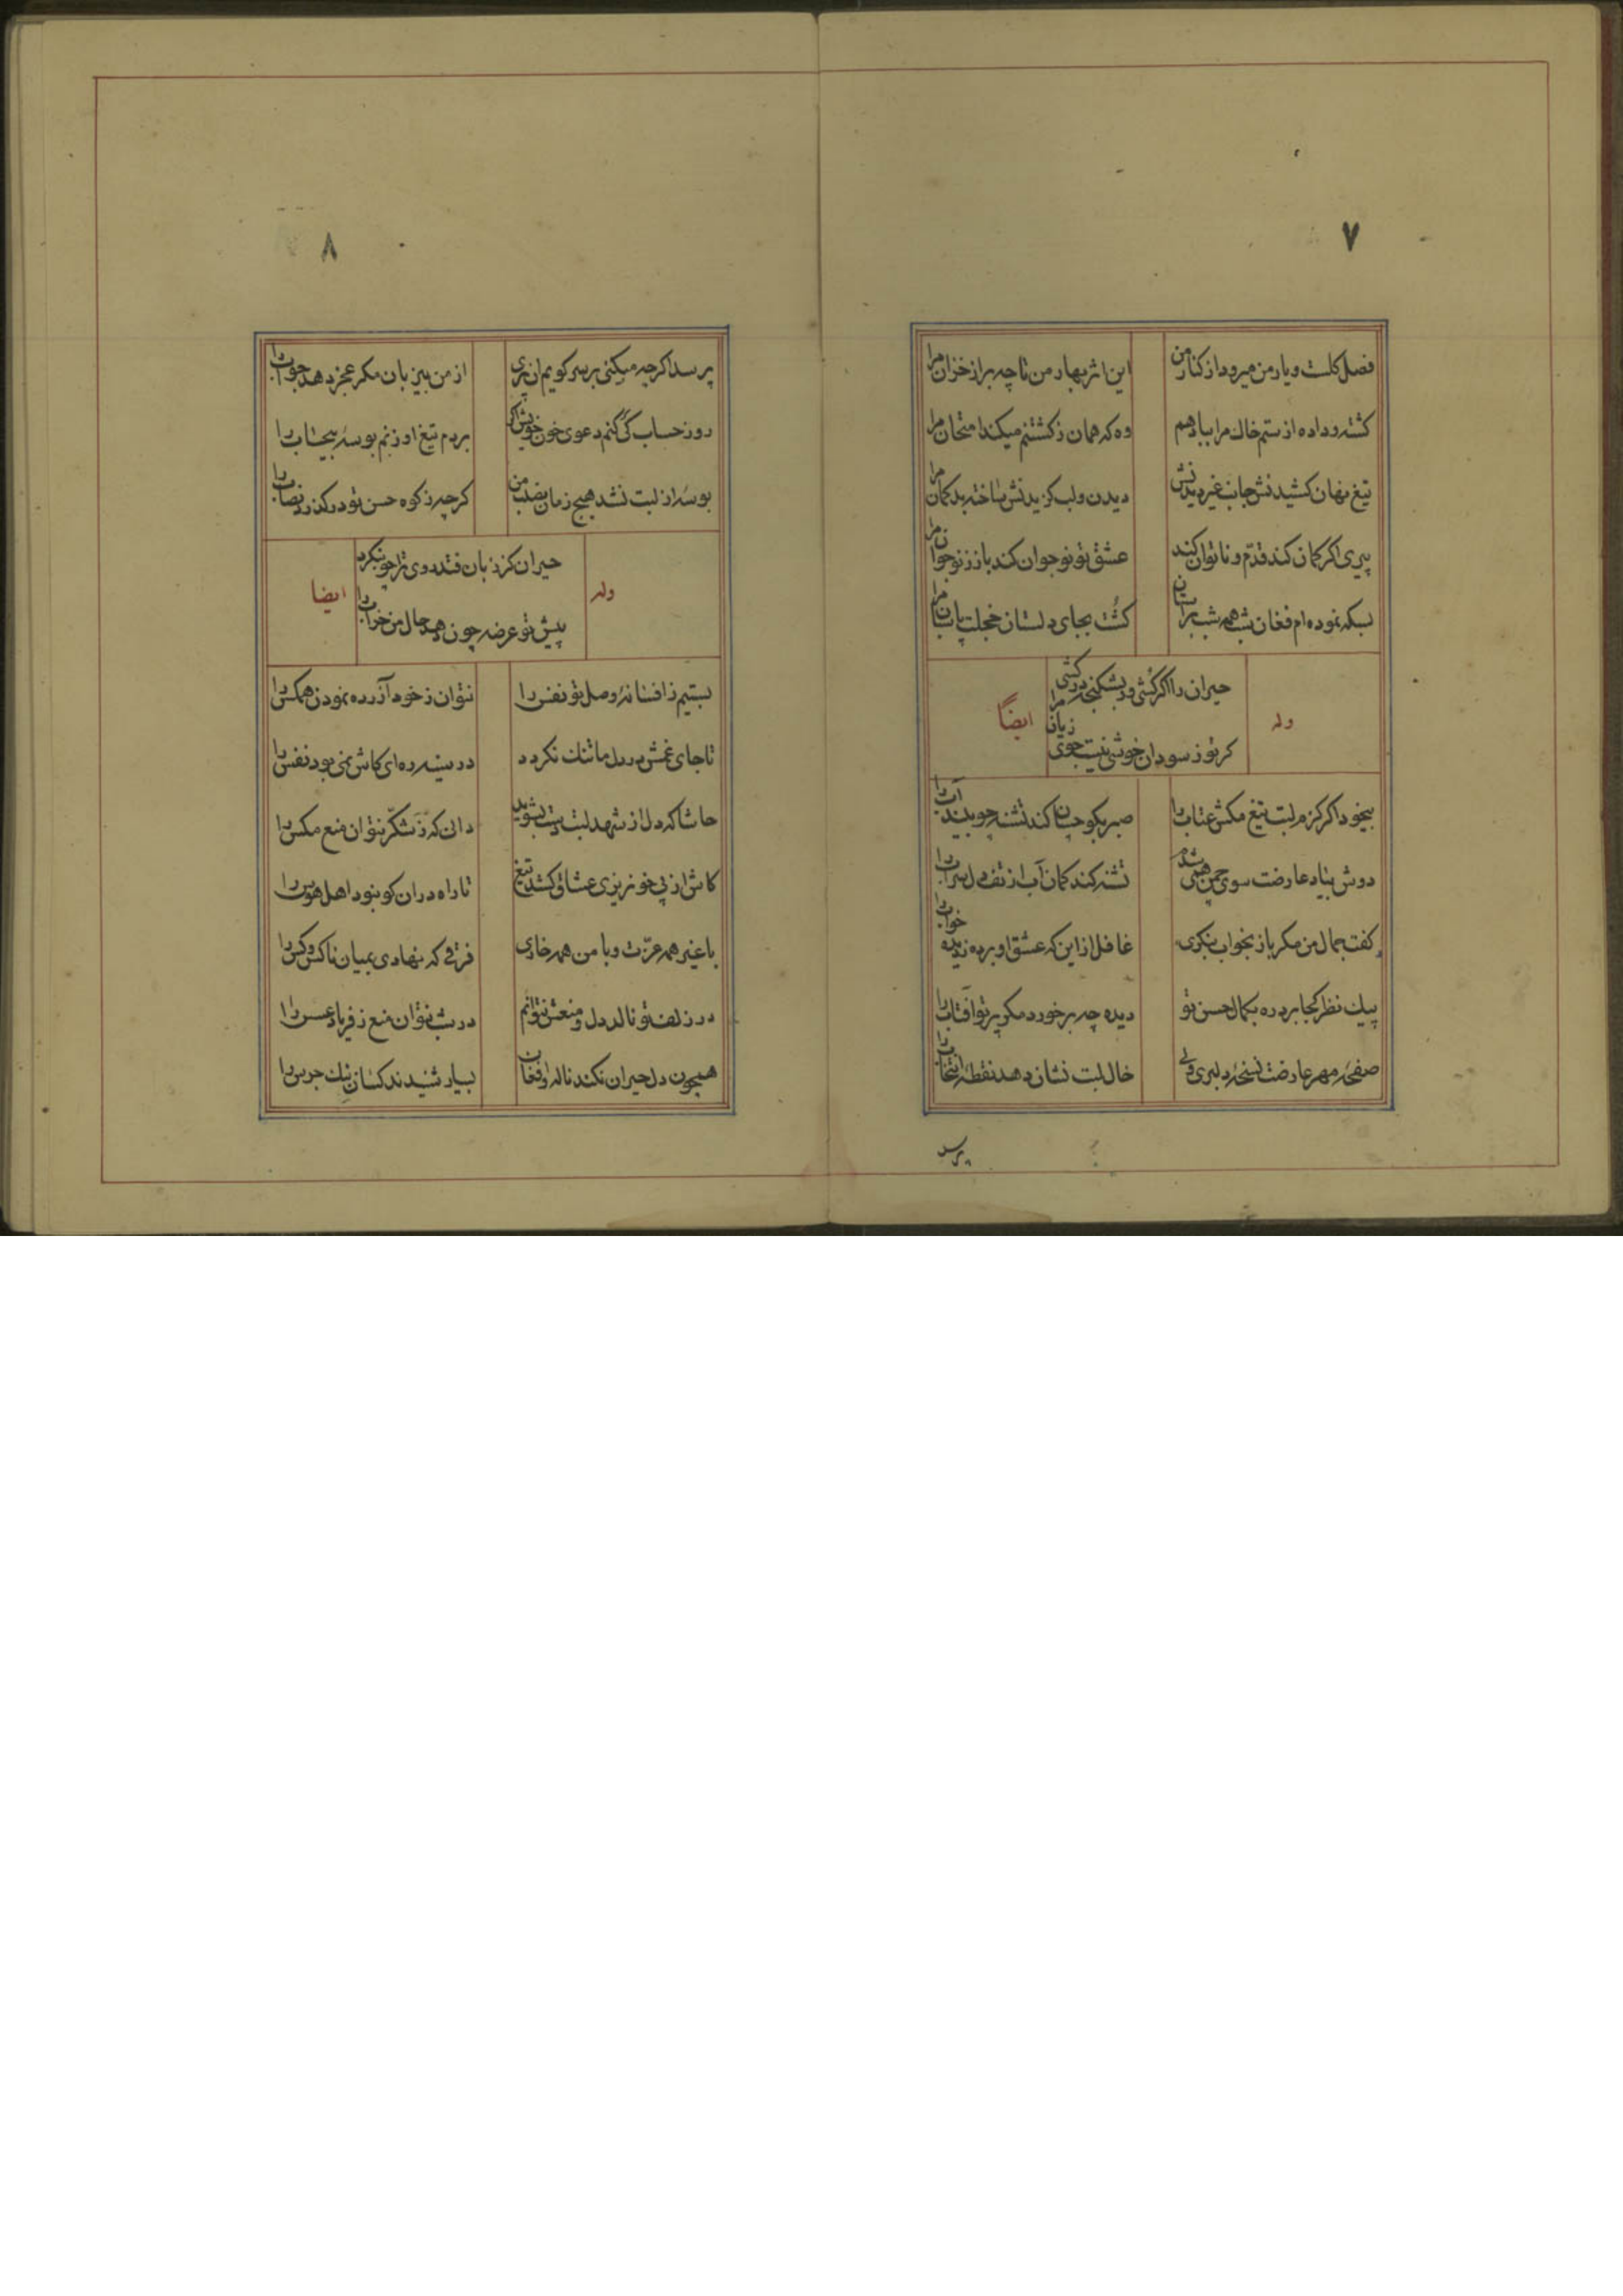 ۷
فصل گلست و یار من میرود از کنار من
این اثر بهار من تا چه بر از خزان مرا
کشته و داده از ستم خاك مرا بباد هم
وه که همان ز کشتنم میکند امتحان مرا
تیغ نهان کشیدنش جانب غیر دیدنش
دیدن و لب گزیدنش ساخته بدگمان مرا
پیری اگر کمان کند قدّم و ناتوان کند
عشق تو نوجوان کند باز ز نو جوان مرا
بسکه نموده‌ام فغان شب همه شب بر آستان
کشت بجای دلستان خجلت پاسبان مرا
وله
حیران را اگر کشی ور بشکنجه درکشی
گر تو ز سود آن خوشی نیست جوی زیان مرا
ایضاً
بیخود اگر گزم لبت تیغ مکش عتاب را
صبر بگو چسان کند تشنه چو بیند آب را
دوش بیاد عارضت سوی چمن همی شدم
تشنه کند کمان آب از تف دل سراب را
گفت جمال من مگر باز بخواب بنگری
غافل از این که عشق او برده ز دیده خواب را
پیك نظر کجا برد ره بکمال حسن تو
دیده چه بر خورد مگر پرتو آفتاب را
صفحهٔ مهر عارضت نسخهٔ دلبری ولی
خال لبت نشان دهد نقطهٔ انتخاب را
پرسد
۸
پرسد اگر چه میکنی بر سر کویم آن پری
از من بیزبان مگر عجز دهد جواب را
روز حساب گر کنم دعوی خون خویش اگر
بر دم تیغ او زنم بوسهٔ بیحساب را
بوسهٔ از لبت نشد هیچ زمان نصیب من
گر چه زکوه حسن تو در گذرد نصاب را
وله
حیران کرد زبان فتد روی ترا چو بنگرد
پیش تو عرضه چون دهد حال من خراب را
ایضا
بستیم ز افسانهٔ وصل تو نفس را
نتوان ز خود آزرده نمودن همه‌کس را
تا جای غمش بر دل ما تنك نگردد
در سینه ره ای کاش نمی‌بود نفس را
حاشا که دل از شهد لبت دست بشوید
دانی که ز شکّر نتوان منع مکس را
کاش از پی خونریزی عشاق کشد تیغ
تا راه در آن کو نبود اهل هوس را
با غیر همه عزّت و با من همه خاری
فرقی که نهادی بمیان ناکس و کس را
در زلف تو نالد دل و منعش نتوانم
در شب نتوان منع ز فریاد عسس را
همچون دل حیران نکند ناله و افغان
بسیار شنیدند کسان بانك جرس را